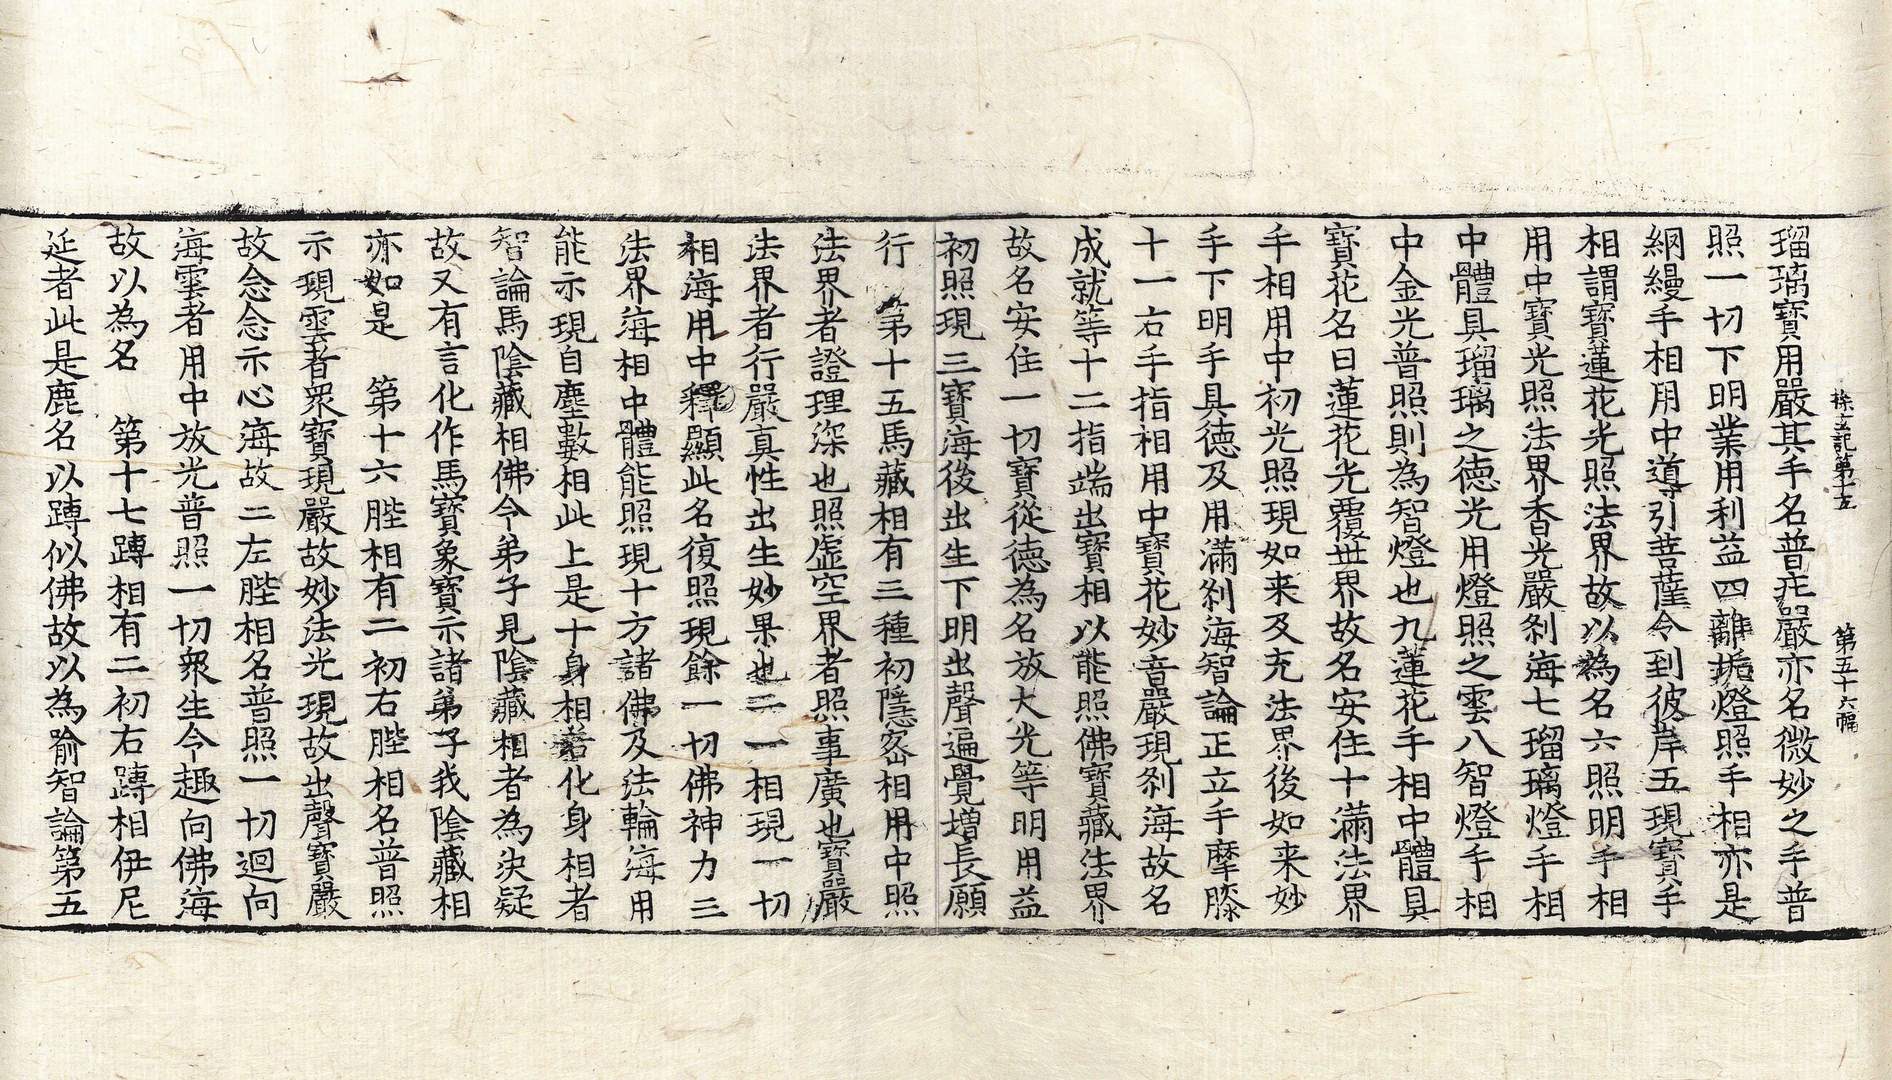 探玄記第十五　第五十六幅
瑠璃寶用嚴其手名普庄嚴亦名微妙之手普
照一切下明業用利益四離垢燈照手相亦是
網縵手相用中導引菩薩令到彼岸五現寶手
相謂寶蓮花光照法界故以為名六照明手相
用中寶光照法界香光嚴刹海七瑠璃燈手相
中體具瑠璃之德光用燈照之雲八智燈手相
中金光普照則為智燈也九蓮花手相中體具
寶花名曰蓮花光覆世界故名安住十滿法界
手相用中初光照現如来及充法界後如来妙
手下明手具德及用滿刹海智論正立手摩膝
十一右手指相用中寶花妙音嚴現刹海故名
成就等十二指端出寶相以能照佛寶藏法界
故名安住一切寶從德為名放大光等明用益
初照現三寶海後出生下明出聲遍覺增長願
行　第十五馬藏相有三種初隱密相用中照
法界者證理深也照虛空界者照事廣也寶嚴
法界者行嚴真性出生妙果也二一相現一切
相海用中釋顯此名復照現餘一切佛神力三
法界海相中體能照現十方諸佛及法輪海用
能示現自塵數相此上是十身相者化身相者
智論馬陰藏相佛令弟子見陰藏相者為決疑
故又有言化作馬寶象寶示諸弟子我陰藏相
亦如是　第十六䏶相有二初右䏶相名普照
示現雲者衆寶現嚴故妙法光現故出聲寶嚴
故念念示心海故二左䏶相名普照一切迴向
海雲者用中放光普照一切衆生令趣向佛海
故以為名　第十七蹲相有二初右蹲相伊尼
延者此是鹿名以蹲似佛故以為喻智論第五